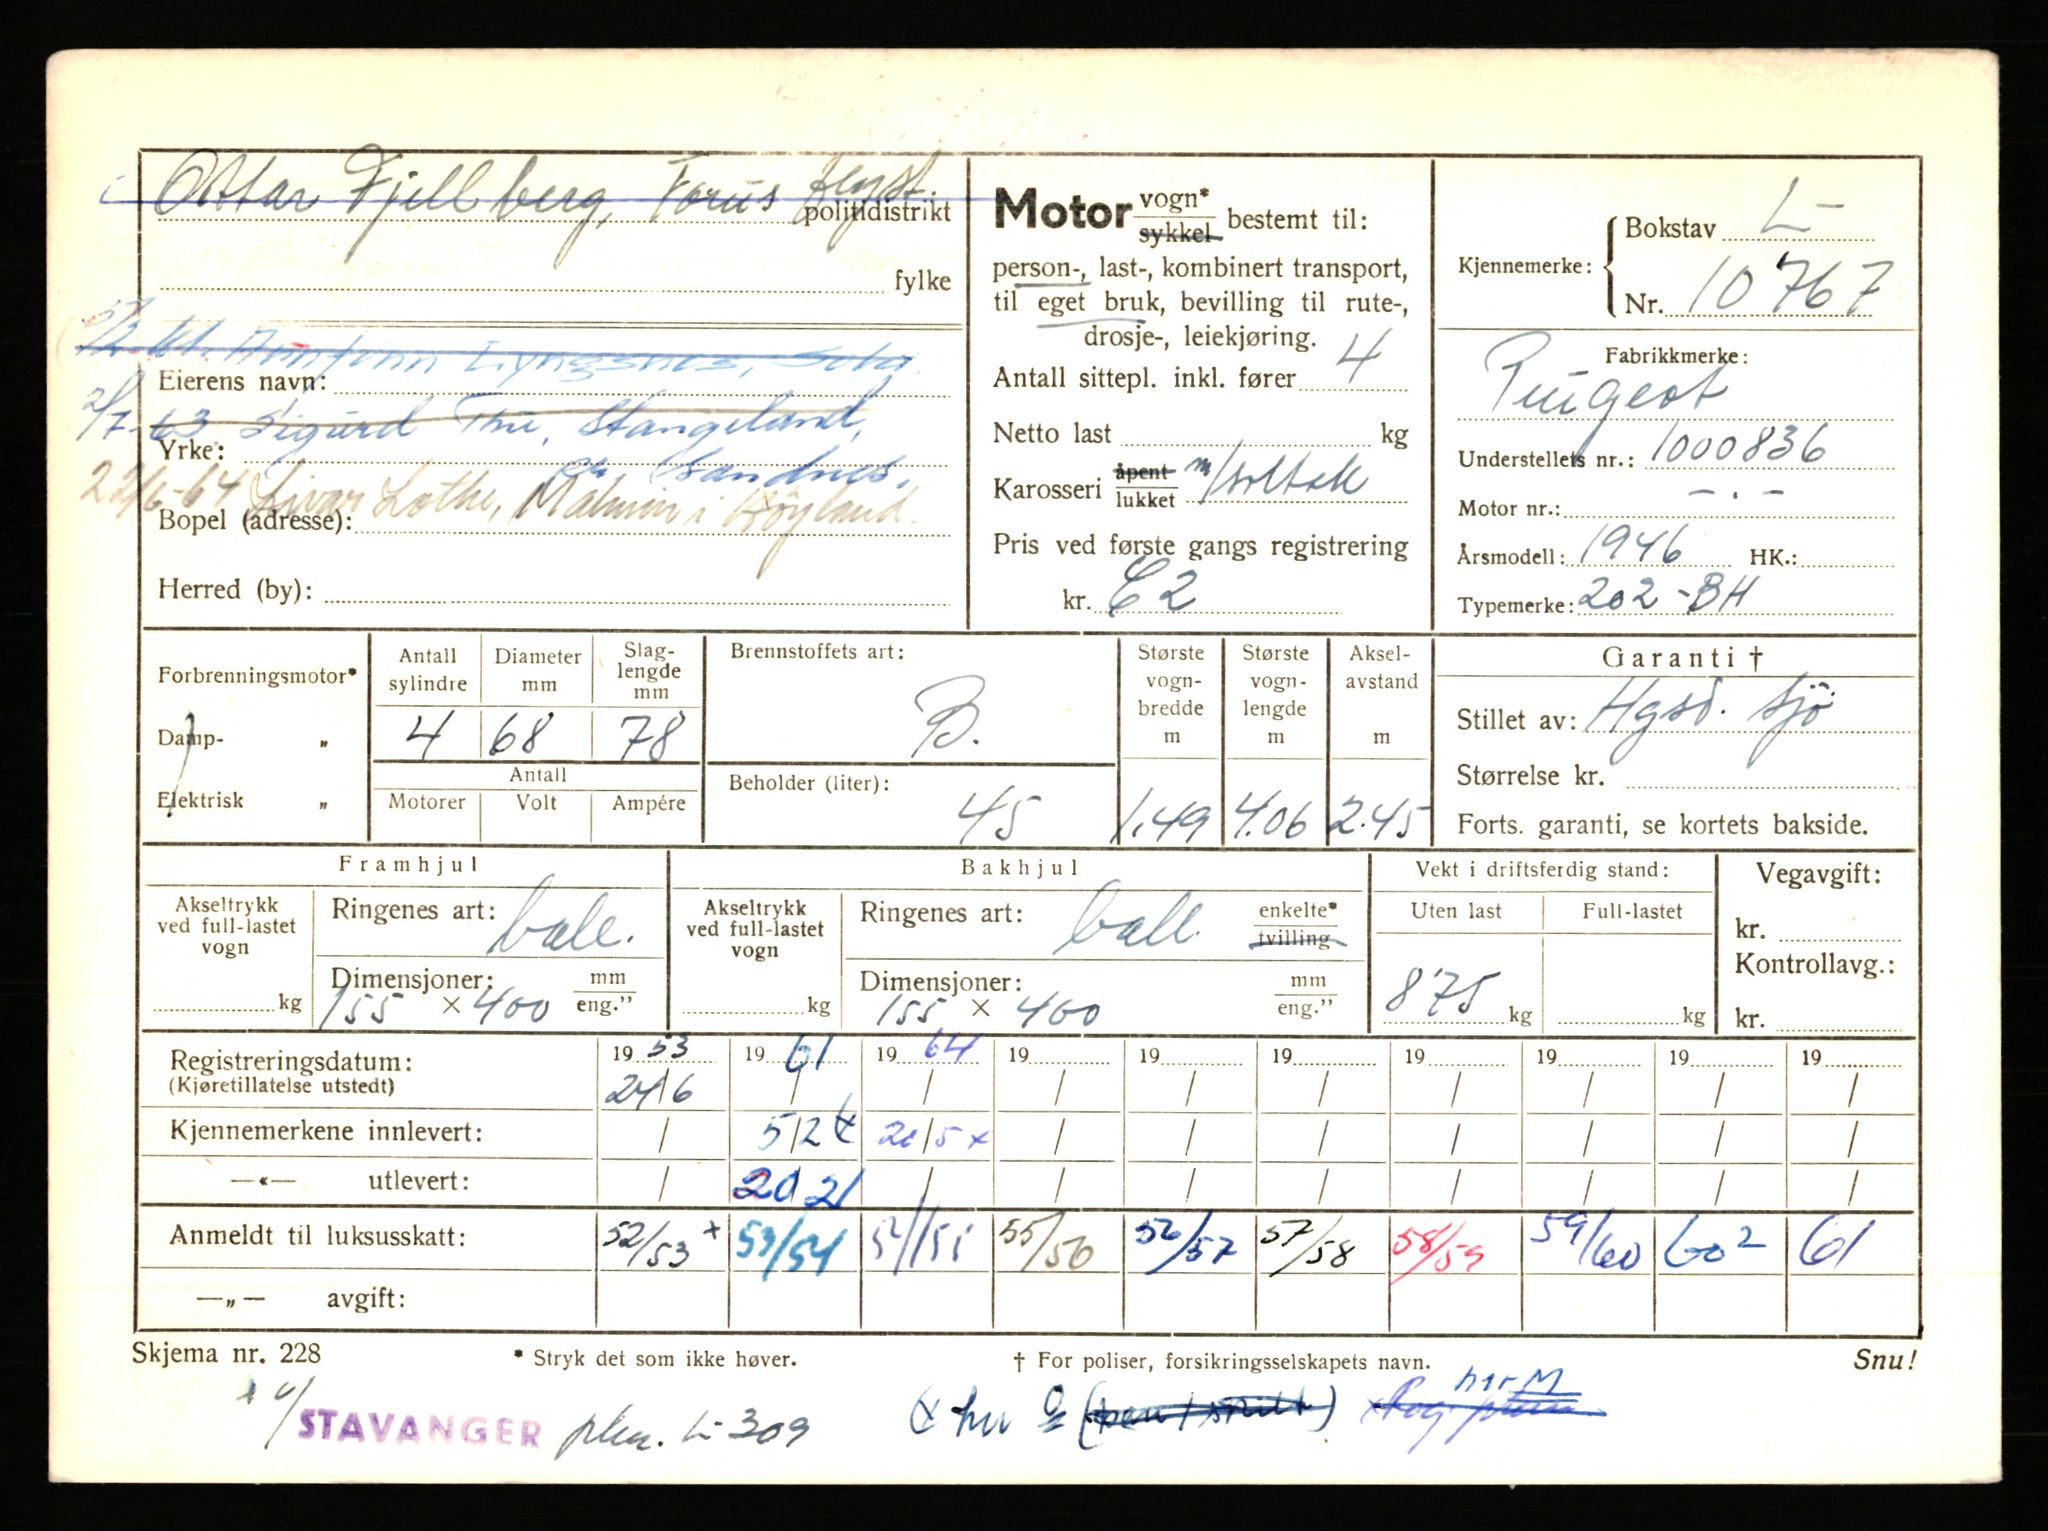 Ottar Fjellberg, Forus
politidistrikt
fylke
Arnfinn Lyngsnes, Sola.
Eierens navn:
2/7-63. Sigurd Thu, Stangeland,
Yrke: Sandnes.
22/6-64 Livar Lothe, Malmin i Høyland.
Bopel (adresse):
Herred (by):
Motor vogn* / sykkel bestemt til:
person-, last-, kombinert transport,
til eget bruk, bevilling til rute-,
drosje-, leiekjøring.
Antall sittepl. inkl. fører 4
Netto last kg
Karosseri åpent / lukket m/soltak
Pris ved første gangs registrering
kr. C2
Kjennemerke: Bokstav L-
Nr. 10767
Fabrikkmerke:
Peugeot
Understellets nr.: 1000836
Motor nr.: -.-
Årsmodell: 1946 HK.:
Typemerke: 202-BH
Forbrenningsmotor*
Damp- „
Elektrisk „
Antall sylindre Diameter mm Slaglengde mm
4 68 78
Antall
Motorer Volt Ampére
Brennstoffets art:
B.
Beholder (liter):
45
Største vognbredde m
1.49
Største vognlengde m
4.06
Akselavstand m
2.45
Garanti †
Stillet av: Hgsd. Sjö
Størrelse kr.
Forts. garanti, se kortets bakside.
Framhjul
Akseltrykk ved full-lastet vogn
kg
Ringenes art: ball.
Dimensjoner: mm
155 × 400 eng."
Bakhjul
Akseltrykk ved full-lastet vogn
kg
Ringenes art: ball. enkelte* / tvilling
Dimensjoner: mm
155 × 400 eng."
Vekt i driftsferdig stand:
Uten last Full-lastet
875 kg kg
Vegavgift:
kr.
Kontrollavg.:
kr.
Registreringsdatum: 1953 1961 1964 19 19 19 19 19 19 19
(Kjøretillatelse utstedt) 24/6 / / / / / / / / /
Kjennemerkene innlevert: / 5/2 x 20/5 x / / / / / / /
—«— utlevert: / 20/2 / / / / / / / /
Anmeldt til luksusskatt: 52/53 x 53/54 54/55 55/56 56/57 57/58 58/59 59/60 60² 61
—„— avgift:
Skjema nr. 228
* Stryk det som ikke høver.
† For poliser, forsikringsselskapets navn.
Snu!
STAVANGER L-309